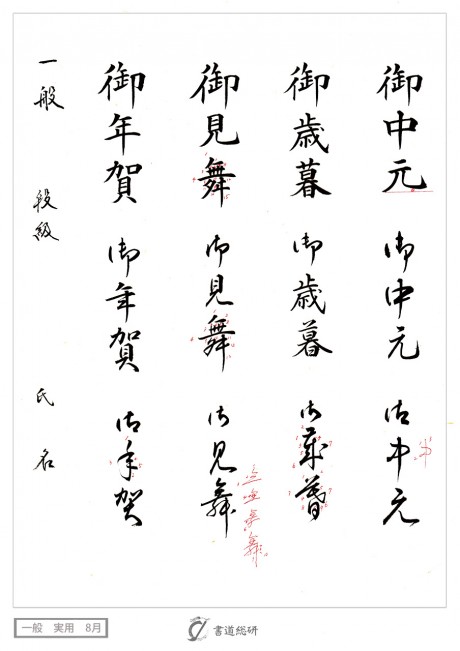 御中元 御中元 御中元
御歳暮 御歳暮 御歳暮
御見舞 御見舞 御見舞
御年賀 御年賀 御年賀
一般 段級 氏名
一般 実用 8月
書道総研